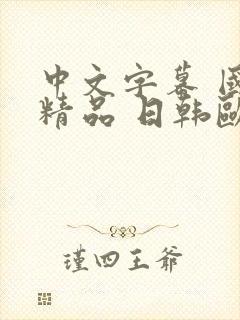 中文字幕 國
精品 日韩歐
瑾四王爺